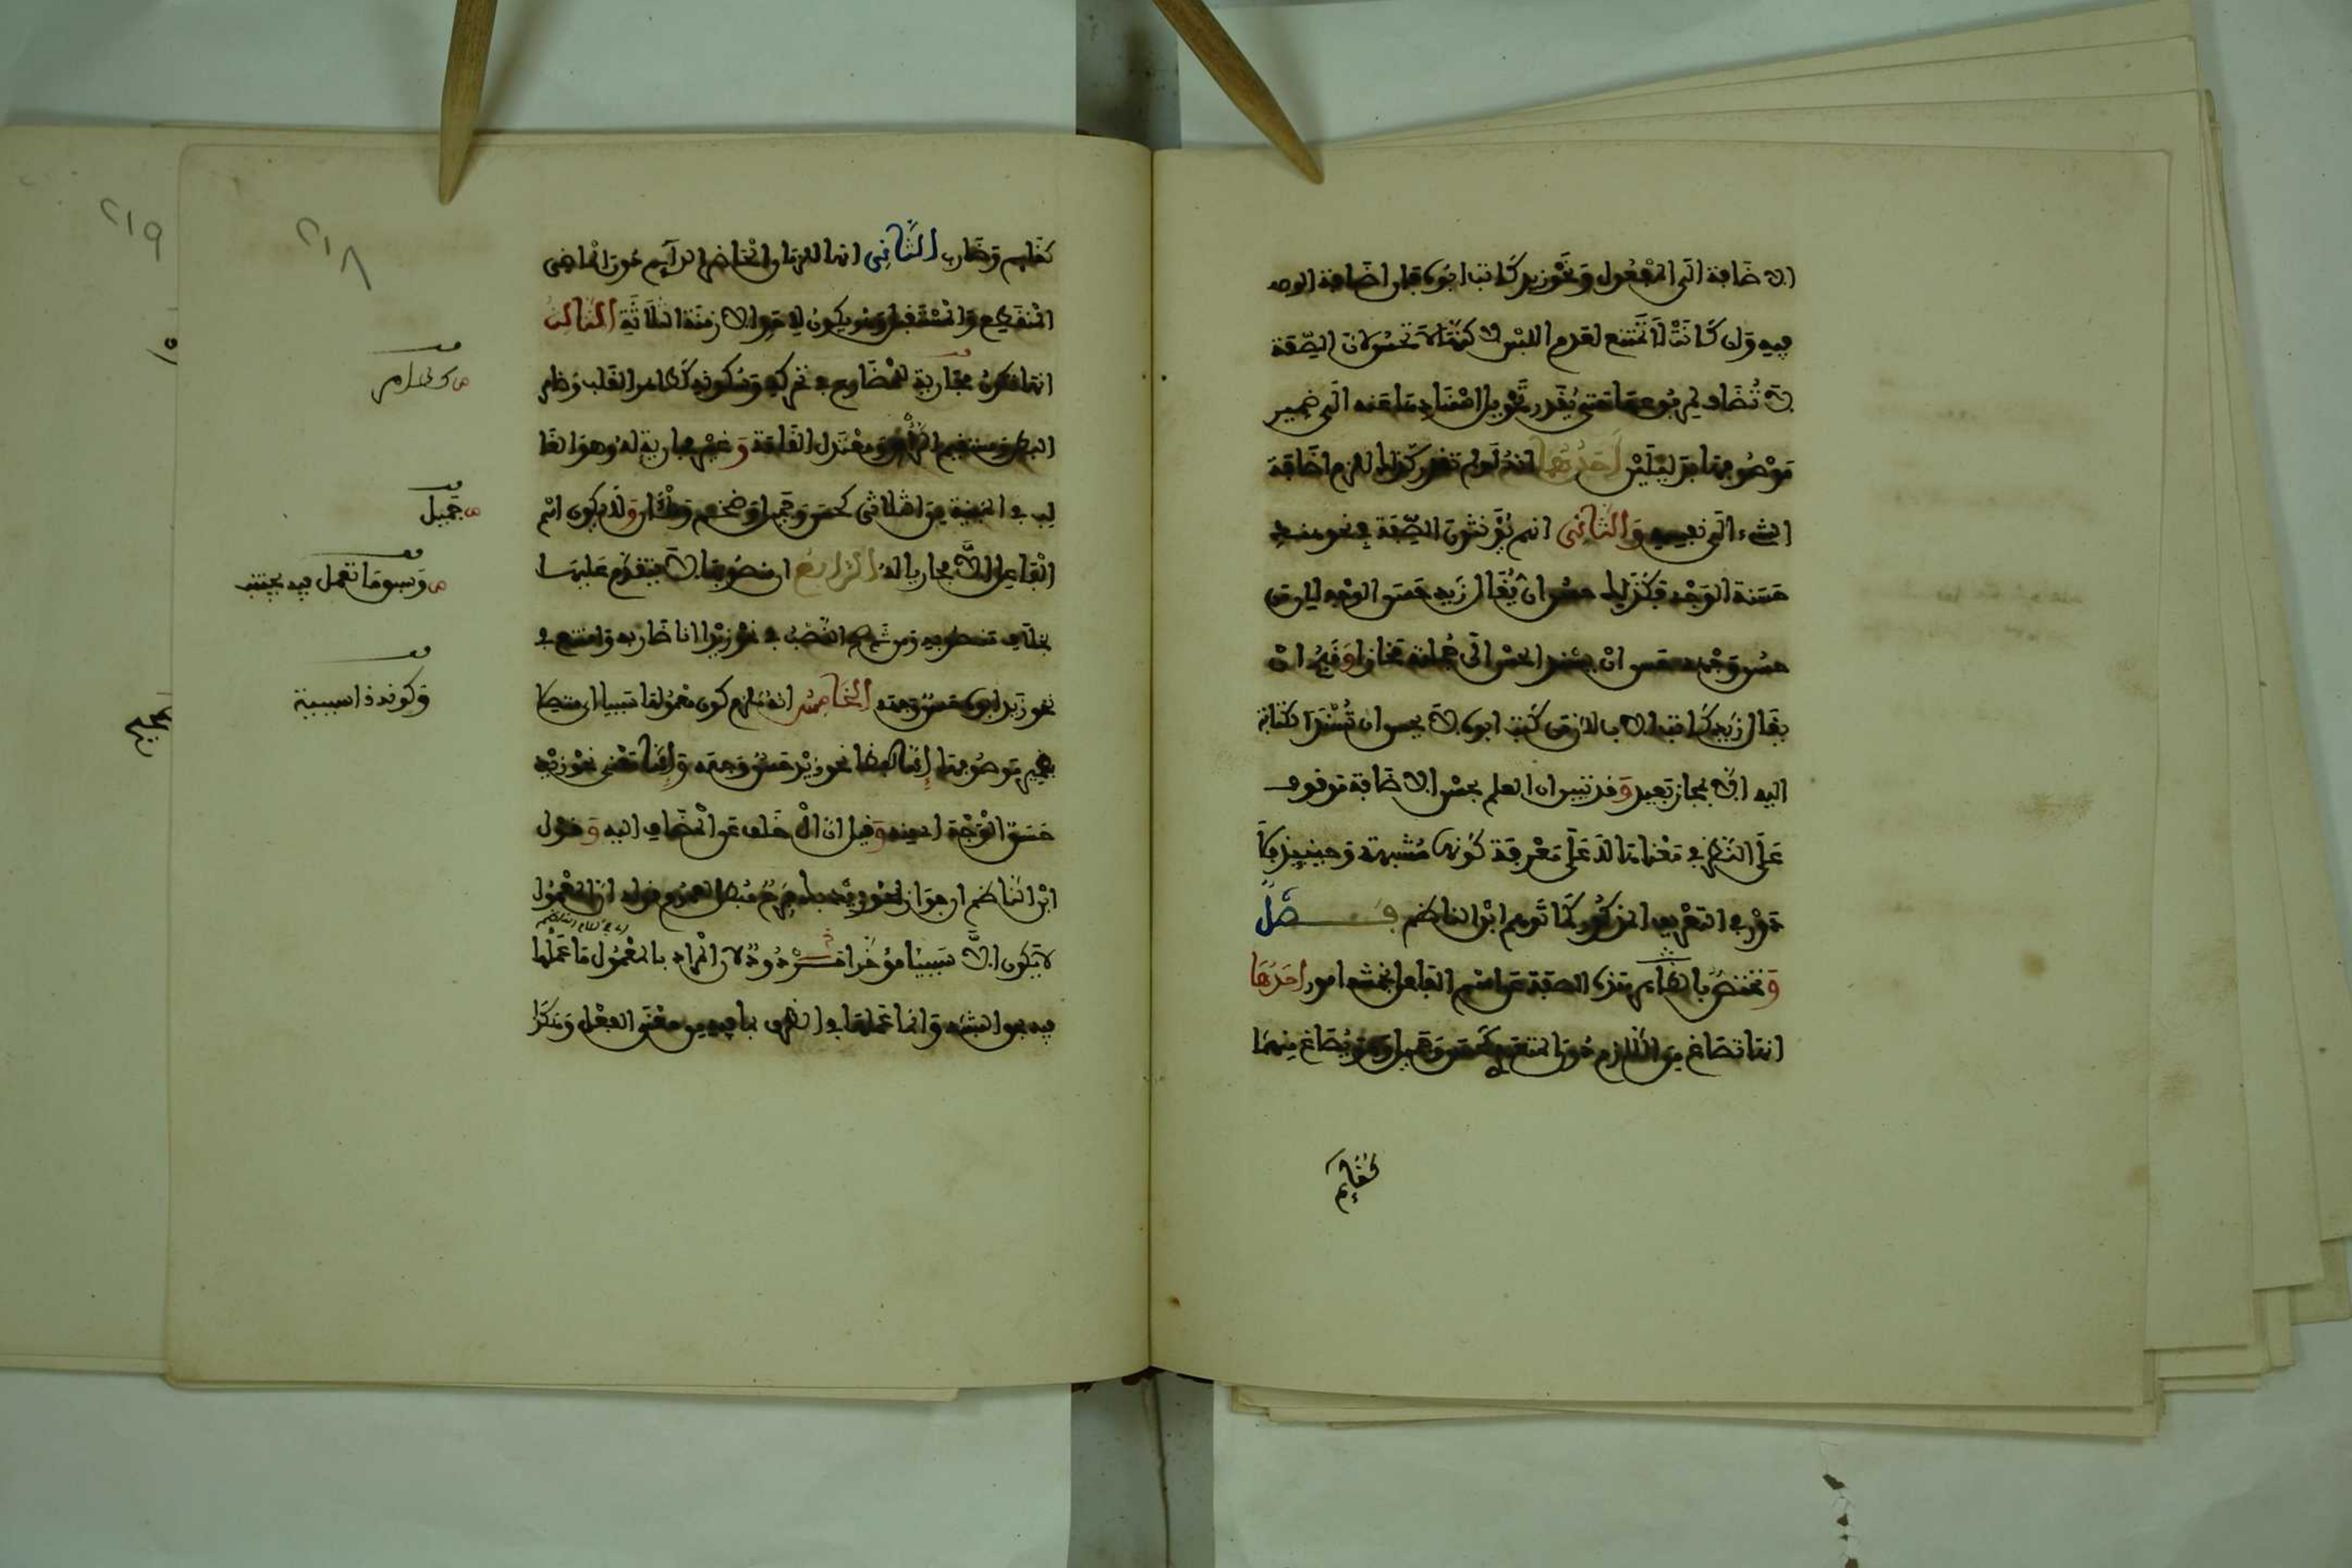 الاضافة الى المفعول ونحو زيد كاتب ابوه فان اضافة الوصف
فيه وان كانت لا تمتنع لعدم اللبس لاكنها لا تحسن لان الصفة
لا تضاف لمرفوعها حتى يقدر تحويل اسنادها عنه الى ضمير
موصوفها بدليلين احدهما انه لو لم تقدر كذلك لزم اضافة
الشيء الى نفسه والثاني انهم يؤنثون الصفة في نحو هند
حسنة الوجه فلذلك حسن ان يقال زيد حسن الوجه لان من
حسن وجهه حسن ان يسند الحسن الى جملته مجازا وقبح ان
يقال زيد كاتب الاب لان من كتب ابوه لا يحسن ان تسند الكتابة
اليه الا بمجاز بعيد وقد تبين ان العلم بحسن الاضافة موقوف
على النظر في معناها لا على معرفة كونها مشبهة وحينئذ فلا
دور في التعريف المذكور كما توهم ابن الناظم فصل
وتختص هذه الصفة عن اسم الفاعل بخمسة امور احدها
انها تصاغ من اللازم دون المتعدي كحسن وجميل وهو يصاغ منهما
كقايم
كقايم وضارب الثاني انها للزمان الحاضر الدايم دون الماضي
المنقطع والمستقبل وهو يكون لاحد الازمنة الثلاثة الثالث
انها تكون مجارية للمضارع في تحركه وسكونه كطاهر القلب وضامر
البطن ومستقيم الراي ومعتدل القامة وغير مجارية له وهو الغا
لب في المبنية من الثلاثي كحسن وجميل وضخم وملآن ولا يكون اسم
الفاعل الا مجاريا له الرابع ان منصوبها لا يتقدم عليها
بخلاف منصوبه ومن ثم صح النصب في نحو زيدا انا ضاربه وامتنع في
نحو زيد ابوه حسن وجهه الخامس انه يلزم كون معمولها سببيا اي متصلا
بضمير موصوفها اما لفظا نحو زيد حسن وجهه واما معنى نحو زيد
حسن الوجه اي منه وقيل ان ال خلف عن المضاف اليه وقول
ابن الناظم ان جواز نحو زيد بك فرح مبطل لعموم قوله ان المعمول
لا يكون الا سببيا مؤخرا مردود لان المراد بالمعمول ما عملها
فيه بحق الشبه وانما عملها في الظرف بما فيه من معنى الفعل وكذا
٢١٨
٢١٩
جميل
وسبق ما تعمل فيه مجتنب
وكونه ذا سببية